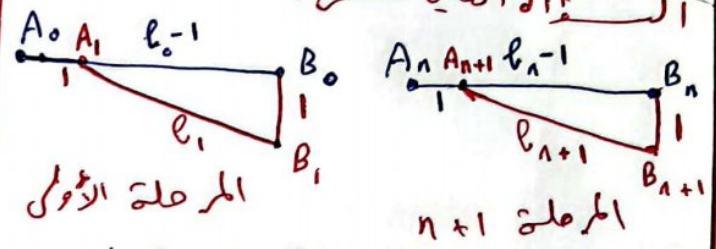 A₀ A₁ l₀-1 B₀
1 1
l₁
B₁
المرحلة الأولى
Aₙ Aₙ₊₁ lₙ-1 Bₙ
1 1
lₙ₊₁
Bₙ₊₁
المرحلة n+1